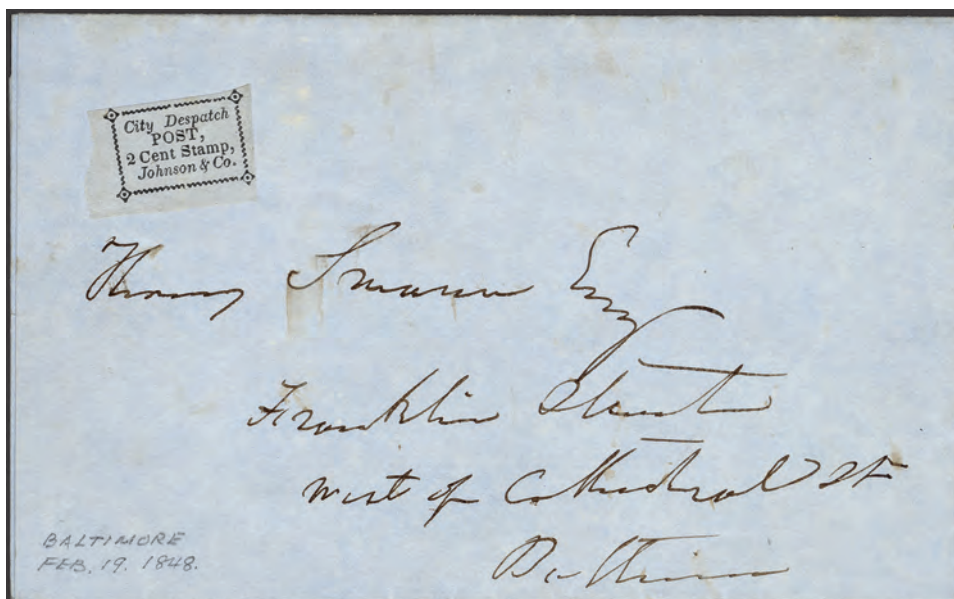 City Despatch
POST,
2 Cent Stamp,
Johnson & Co.
Thomas Swann Esq
Franklin Street
West of Cathedral St
Baltimore
BALTIMORE
FEB. 19. 1848.